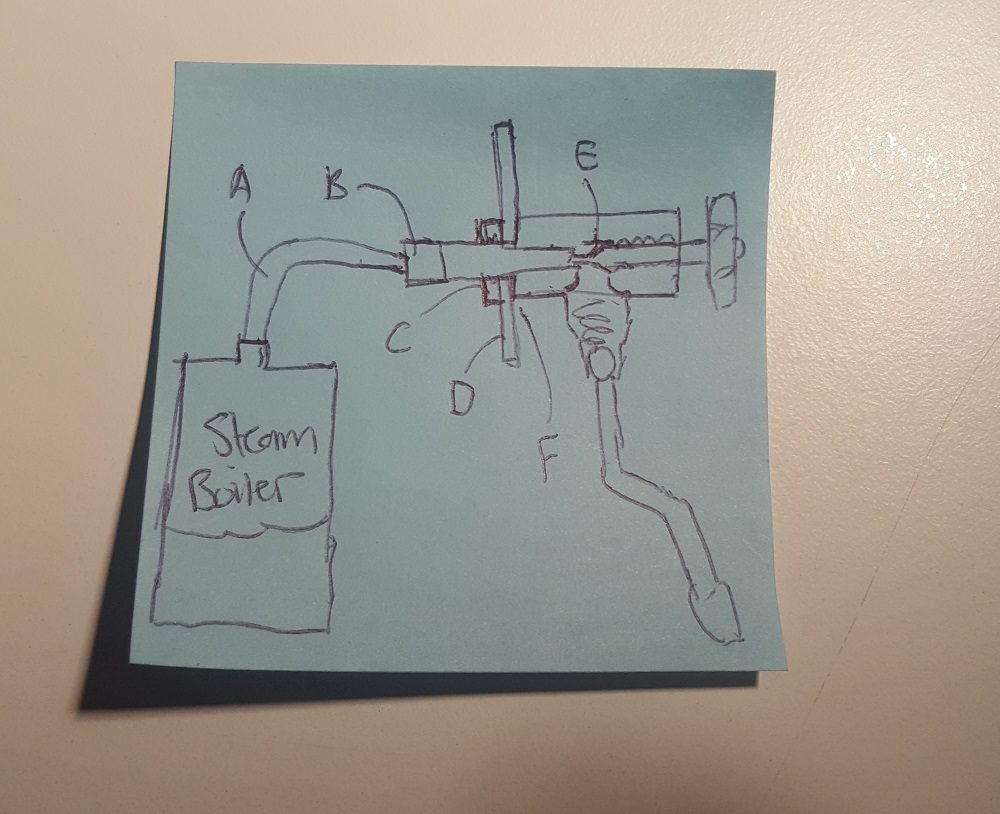 E
A
B
C
D
F
Steam
Boiler